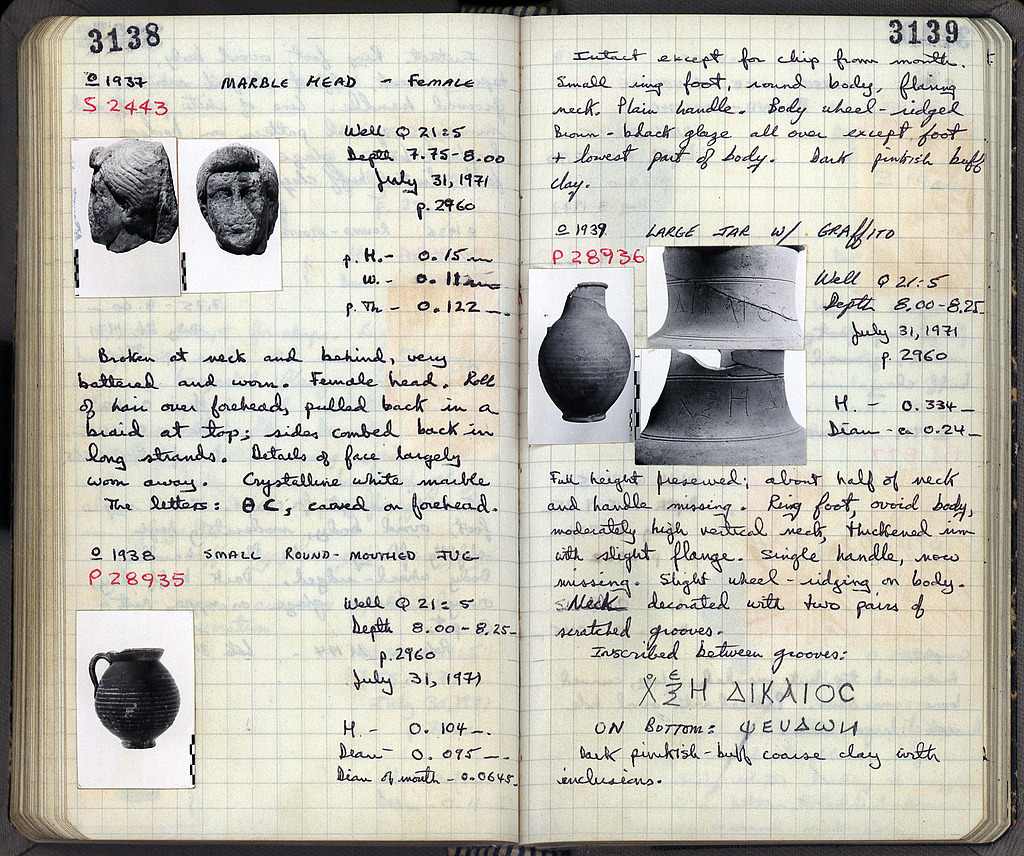 3138
o 1937 MARBLE HEAD - FEMALE
S 2443
Well Q 21:5
Depth 7.75-8.00
July 31, 1971
p. 2960
p. H. - 0.15 m
W. - 0.11 m
p. Th - 0.122 -.
Broken at neck and behind, very
battered and worn. Female head. Roll
of hair over forehead, pulled back in a
braid at top; sides combed back in
long strands. Details of face largely
worn away. Crystalline white marble
The letters: ΘC; carved on forehead.
o 1938 SMALL ROUND-MOUTHED JUG
P 28935
Well Q 21:5
Depth 8.00-8.25-
p. 2960
July 31, 1971
H. - 0.104 -.
Diam - 0.095 -
Diam of mouth - 0.0645
3139
Intact except for chip from mouth.
Small ring foot, round body, flaring
neck. Plain handle. Body wheel-ridged
Brown-black glaze all over except foot
+ lowest part of body. Dark pinkish buff
clay.
o 1939 LARGE JAR W/ GRAffITO
P 28936
Well Q 21:5
Depth 8.00-8.25
July 31, 1971
p. 2960
H. - 0.334 -
Diam - ca 0.24 -
Full height preserved; about half of neck
and handle missing. Ring foot, ovoid body,
moderately high vertical neck, thickened rim
with slight flange. Single handle, now
missing. Slight wheel-ridging on body.
Neck decorated with two pairs of
scratched grooves.
Inscribed between grooves:
ΔΙΚΑΙΟC
ON BOTTOM: ΨΕΥΔωΝ
Dark pinkish-buff coarse clay with
inclusions.